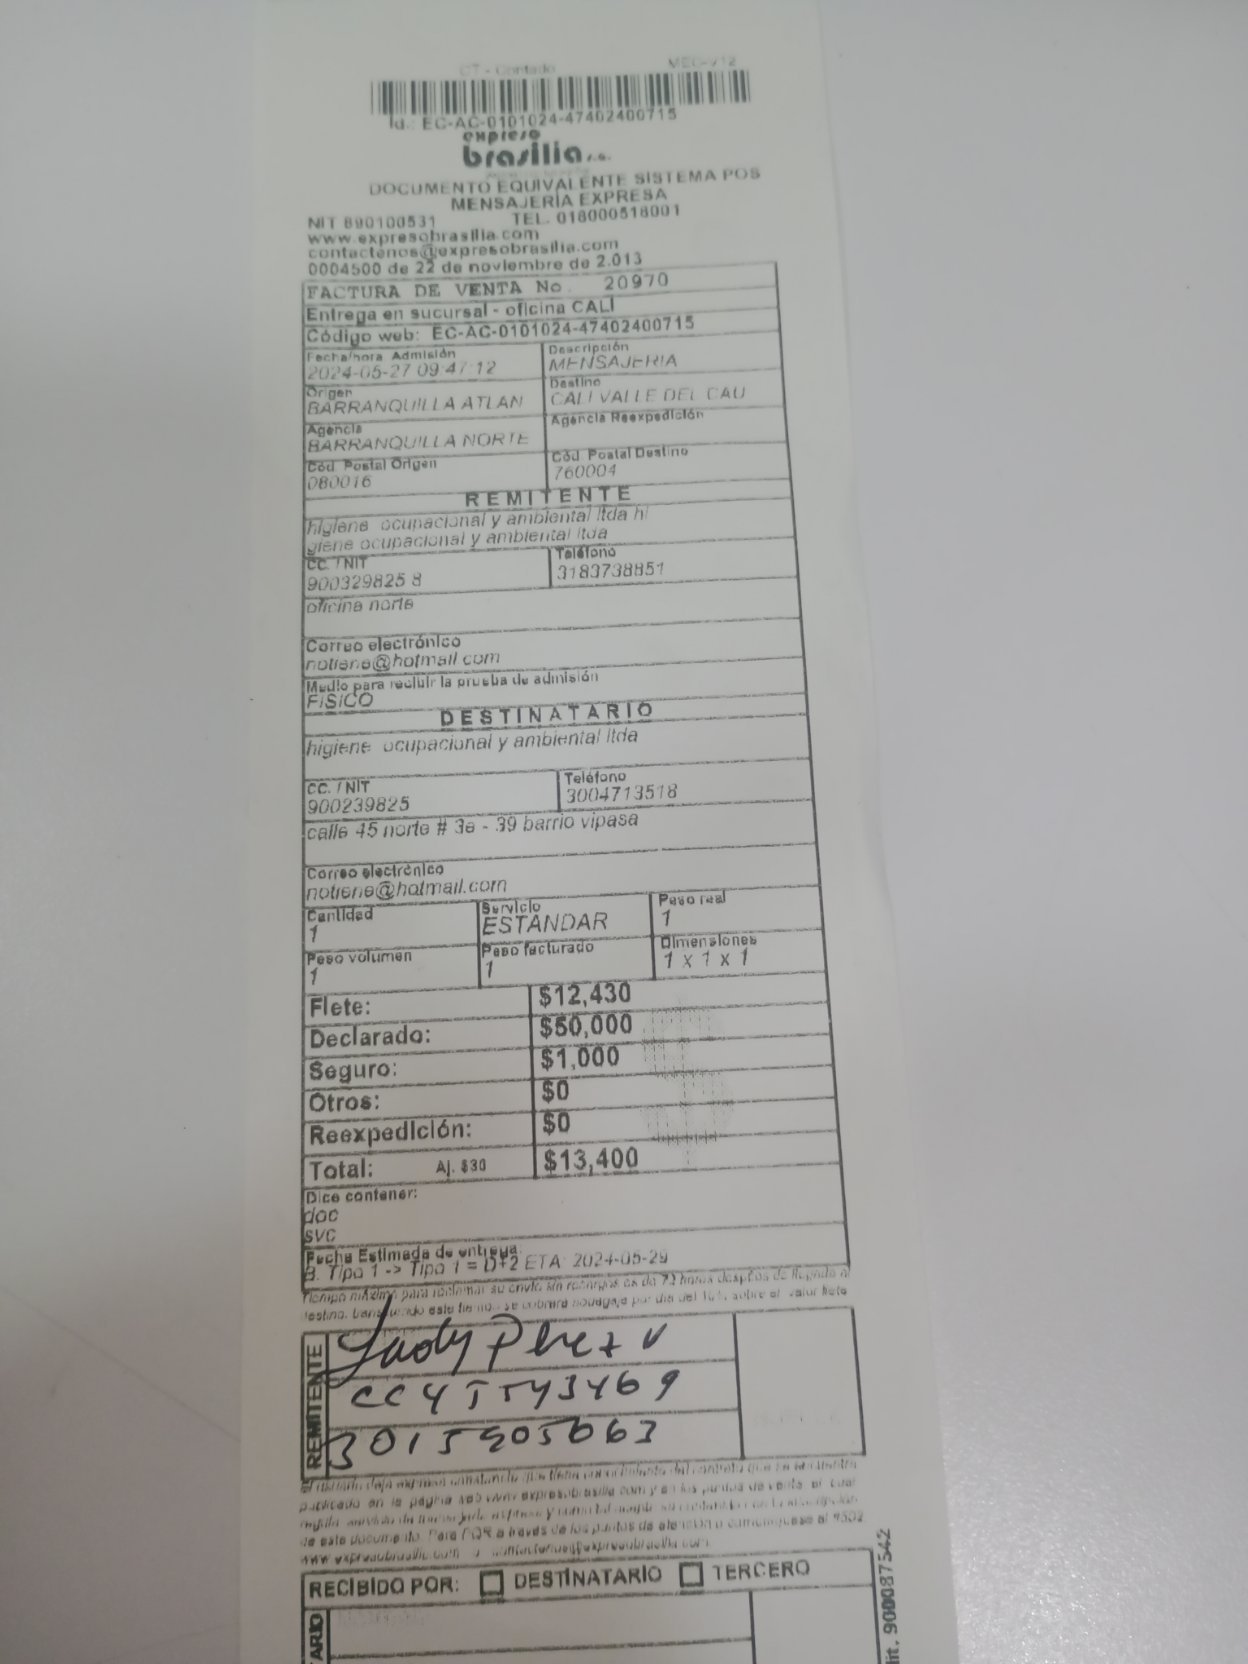 CT - Contado MEC-V12
Id.: EC-AC-0101024-47402400715
expreso
brasilia s.a.
DOCUMENTO EQUIVALENTE SISTEMA POS
MENSAJERÍA EXPRESA
NIT 890100531 TEL. 018000518001
www.expresobrasilia.com
contactenos@expresobrasilia.com
0004500 de 22 de noviembre de 2.013
FACTURA DE VENTA No. 20970
Entrega en sucursal - oficina CALI
Código web: EC-AC-0101024-47402400715
Fecha/hora Admisión Descripción
2024-05-27 09:47:12 MENSAJERIA
Origen Destino
BARRANQUILLA ATLAN CALI VALLE DEL CAU
Agencia Agencia Reexpedición
BARRANQUILLA NORTE
Cód. Postal Origen Cód. Postal Destino
080016 760004
REMITENTE
higiene ocupacional y ambiental ltda hi
giene ocupacional y ambiental ltda
CC. / NIT Teléfono
900329825 8 3183738851
oficina norte
Correo electrónico
notiene@hotmail.com
Medio para recibir la prueba de admisión
FISICO
DESTINATARIO
higiene ocupacional y ambiental ltda
CC. / NIT Teléfono
900239825 3004713518
calle 45 norte # 3e - 39 barrio vipasa
Correo electrónico
notiene@hotmail.com
Cantidad Servicio Peso real
1 ESTANDAR 1
Peso volumen Peso facturado Dimensiones
1 1 1 x 1 x 1
Flete: $12,430
Declarado: $50,000
Seguro: $1,000
Otros: $0
Reexpedición: $0
Total: Aj. $30 $13,400
Dice contener:
doc
svc
Fecha Estimada de entrega:
B. Tipo 1 -> Tipo 1 = D+2 ETA: 2024-05-29
Tiempo máximo para reclamar su envío sin recargos es de 72 horas después de llegado al
destino, se cobrará bodegaje por día del 10% sobre el valor flete
REMITENTE
Lady Perez V
CC
de este documento. Para PQR a través de los puntos de atención o comuníquese al
www.expresobrasilia.com o contactenos@expresobrasilia.com
RECIBIDO POR: DESTINATARIO TERCERO